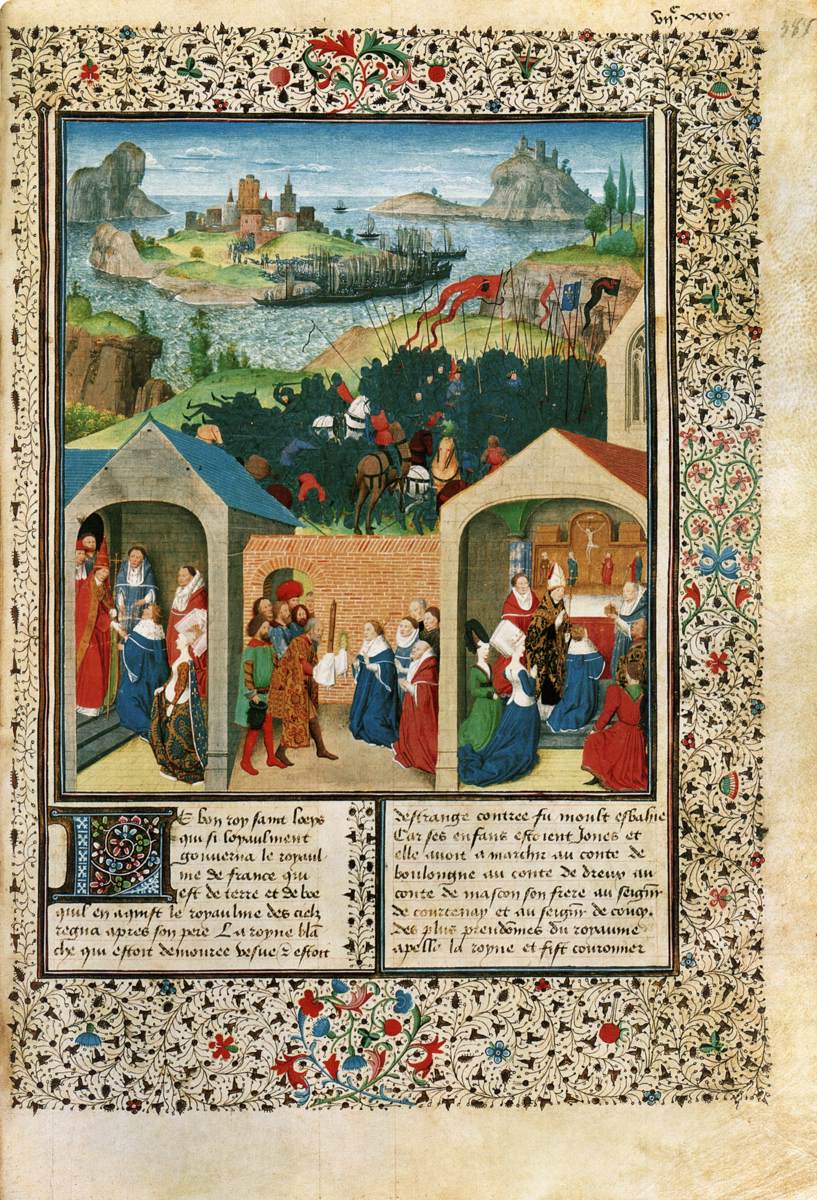 vijᶜ.xxix.
385
Le bon roy saint loeys
qui si loyaulment
gouverna le royaul
me de france qui
est de terre et de boe
quil en aquist le royaulme des cielz
regna apres son pere La royne blā
che qui estoit demouree vesue et estoit
destrange contree fu moult esbahie
Car ses enfans estoient Jones et
elle avoit a marchir au conte de
boulongne au conte de dreux au
conte de mascon son frere au seigñr
de courtenay et au seigñr de coucy.
des plus preudōmes du royaume
apella la royne et fist couronner